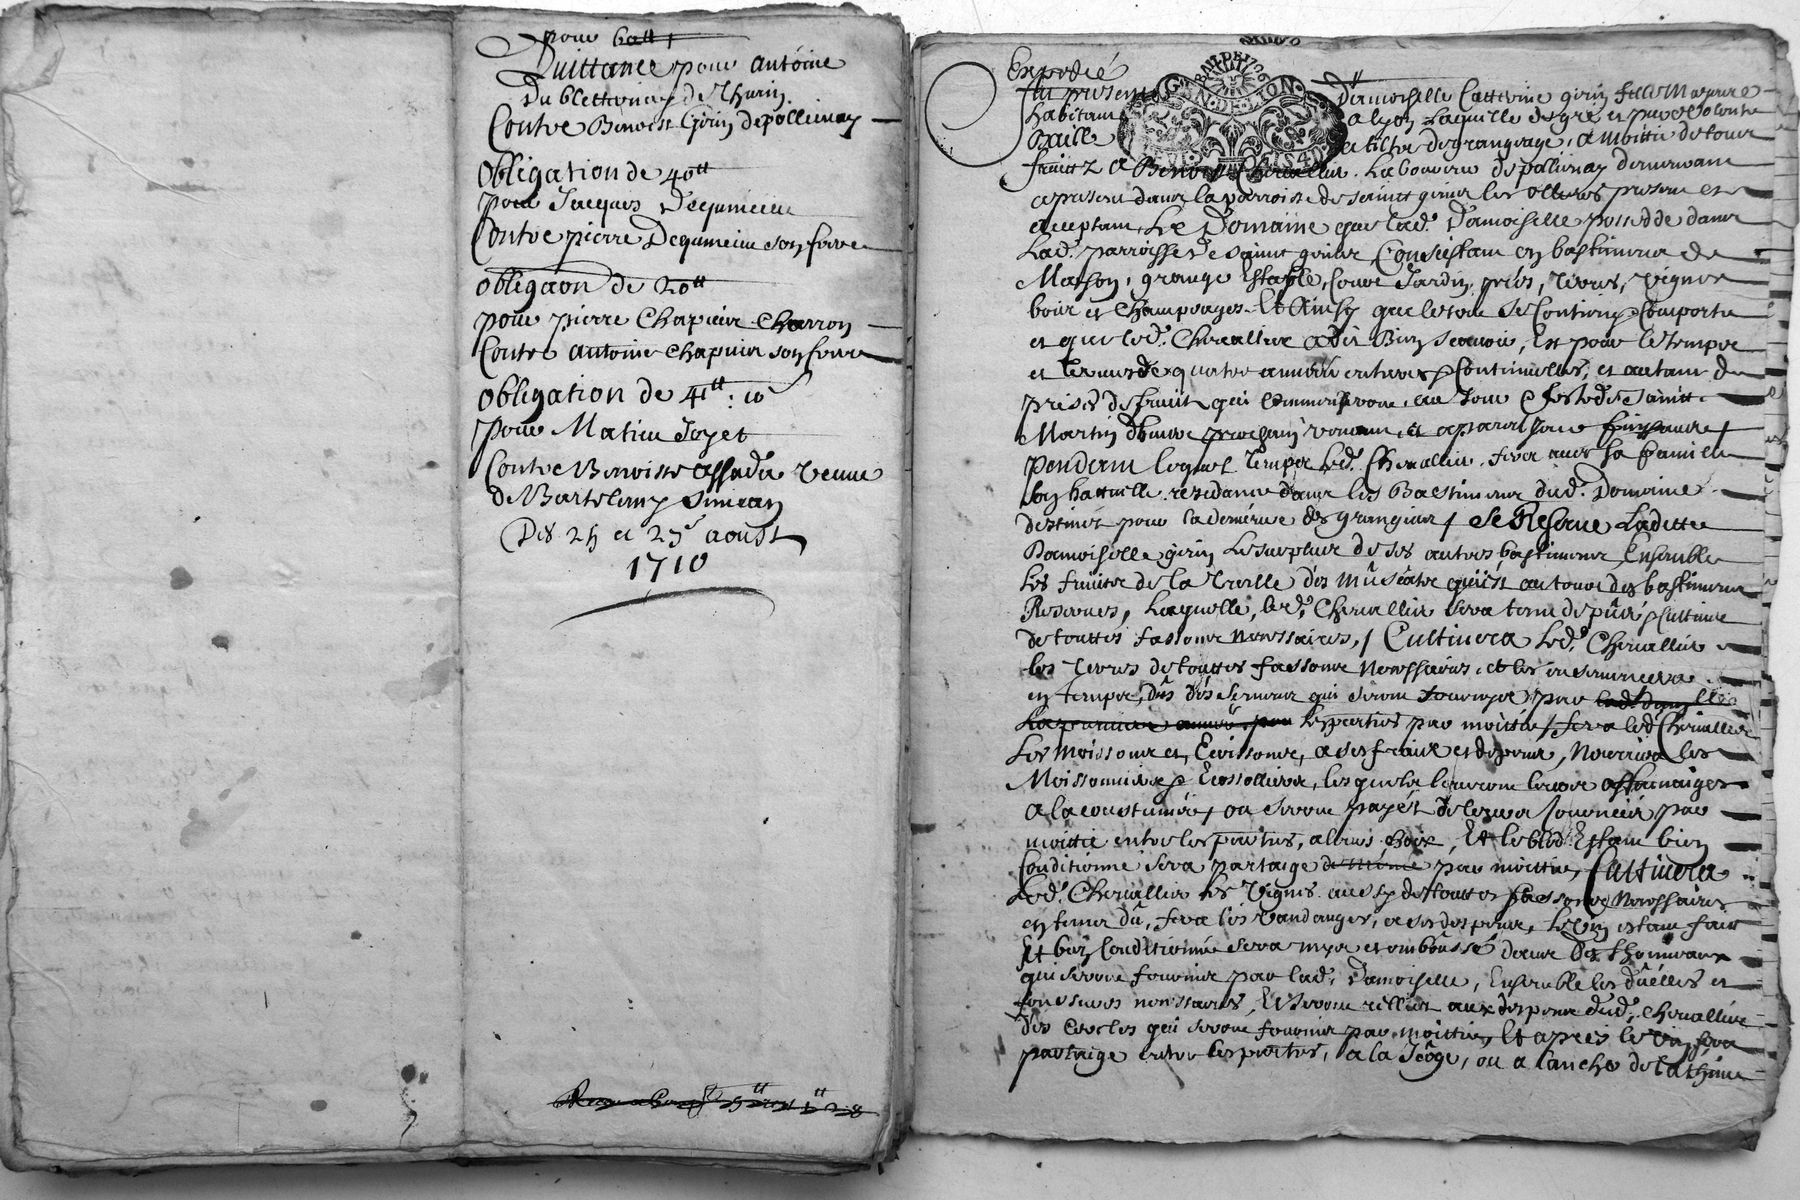 pour
Quittance pour antoine
Du de Thurin
Contre Benoist Girin de pollienay
Obligation de 40ᵗᵗ
pour Jacques Degumieu
Contre pierre Degumieu son frere
obligaon de 20ᵗᵗ
pour pierre Chapuir Charron
Contre antoine Chapuir son frere
obligation de 41ᵗᵗ : 10ˢ
pour Matieu Joyet
Contre Benoiste veuve
de Bartelemy Simean
Des 24 et 25ᵉ aoust
1710
Expedié
GEN. DE LYON
fut presente Damoiselle Catterine girin fille Majeure
habitant a lyon laquelle de gré et
Baille a tiltre de grangeage, a moittié de tous
fruitz a Benoist Chevallier Laboureur de pollienay demeurant
a present dans la parroisse de sainct genis les ollieres present et
acceptant, Le Domaine que lad. Damoiselle possedde dans
Lad. parroisse de sainct genis Consistant en bastiments de
Maison, grange Estable, Court Jardin, prés, terres, vignes
bois et Et Ainsy que le tout se Contient Comporte
et que led. Chevallier a dit Bien scavoir, Est pour le temps
et terme de quatre années entieres Continuelles, et autant de
prises de fruit qui Commenseront au Jour feste de Sainct
Martin d'hiver prochain venant, et a pareil Jour
pendant lequel temps led. Chevallier fera avec sa famille
son habituelle residance dans les Bastiments dud. Domaine
destinés pour la demeure des grangiers, Se Reserve Laditte
Damoiselle girin le surplus de ses autres bastiments, Ensemble
les fruits de la treille des muscats qui est autour des bastiments
Reservés, Laquelle, led. Chevallier sera tenu de Cultiver
de touttes fassons nessesaires, Cultivera led. Chevallier
les terres de touttes fassons nessesaires, et les ensemencera
en temps dûs des semences qui seront fournyes par
les parties par moittié, fera led. Chevallier
les moissons et Ecossons, a ses fraix et despens, Nourrira les
Moissonniers Ecossolliers, lesquels leveront leurs
a la coustumée, ou seront payés de leurs Journées par
moittié entre les parties, a leurs choix, Et le bled Estant bien
Conditionné sera partagé par moittié, Cultivera
led. Chevallier les vignes aussy de touttes fassons nessesaires
en temps dû, fera les vandanges, a ses despens, Le vin estant fait
Et bien Conditionné sera mys et embousé dans des thonneaux
qui seront fournis par lad. Damoiselle, Ensemble les duelles et
fonssures nessesaires, Et seront relliés aux despens dud. Chevallier
des cercles qui seront fournis par moittié, Et apres le vin sera
partaigé entre les parties, a la Jeoge, ou a l'anche de la thine